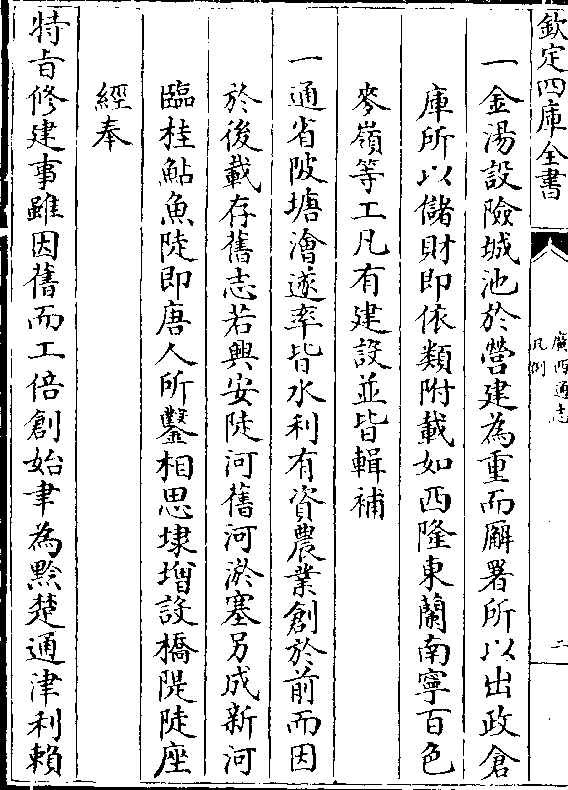 欽定四庫全書
廣西通志
凡例
二
一金湯設險城池於營建為重而廨署所以出政倉
庫所以儲財即依類附載如西隆東蘭南寧百色
麥嶺等工凡有建設並皆輯補
一通省陂塘澮遂率皆水利有資農業創於前而因
於後載存舊志若興安陡河舊河淤塞另成新河
臨桂鮎魚陡即唐人所鑿相思埭增設橋隄陡座
經奉
特旨修建事雖因舊而工倍創始聿為黔楚通津利賴